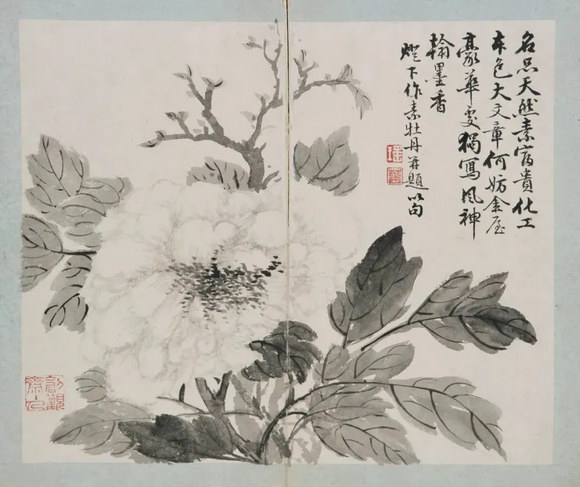 名品天然素富貴化工
本色大文章何妨金屋
豪華處獨寫風神
翰墨香
燈下作素牡丹并題以句